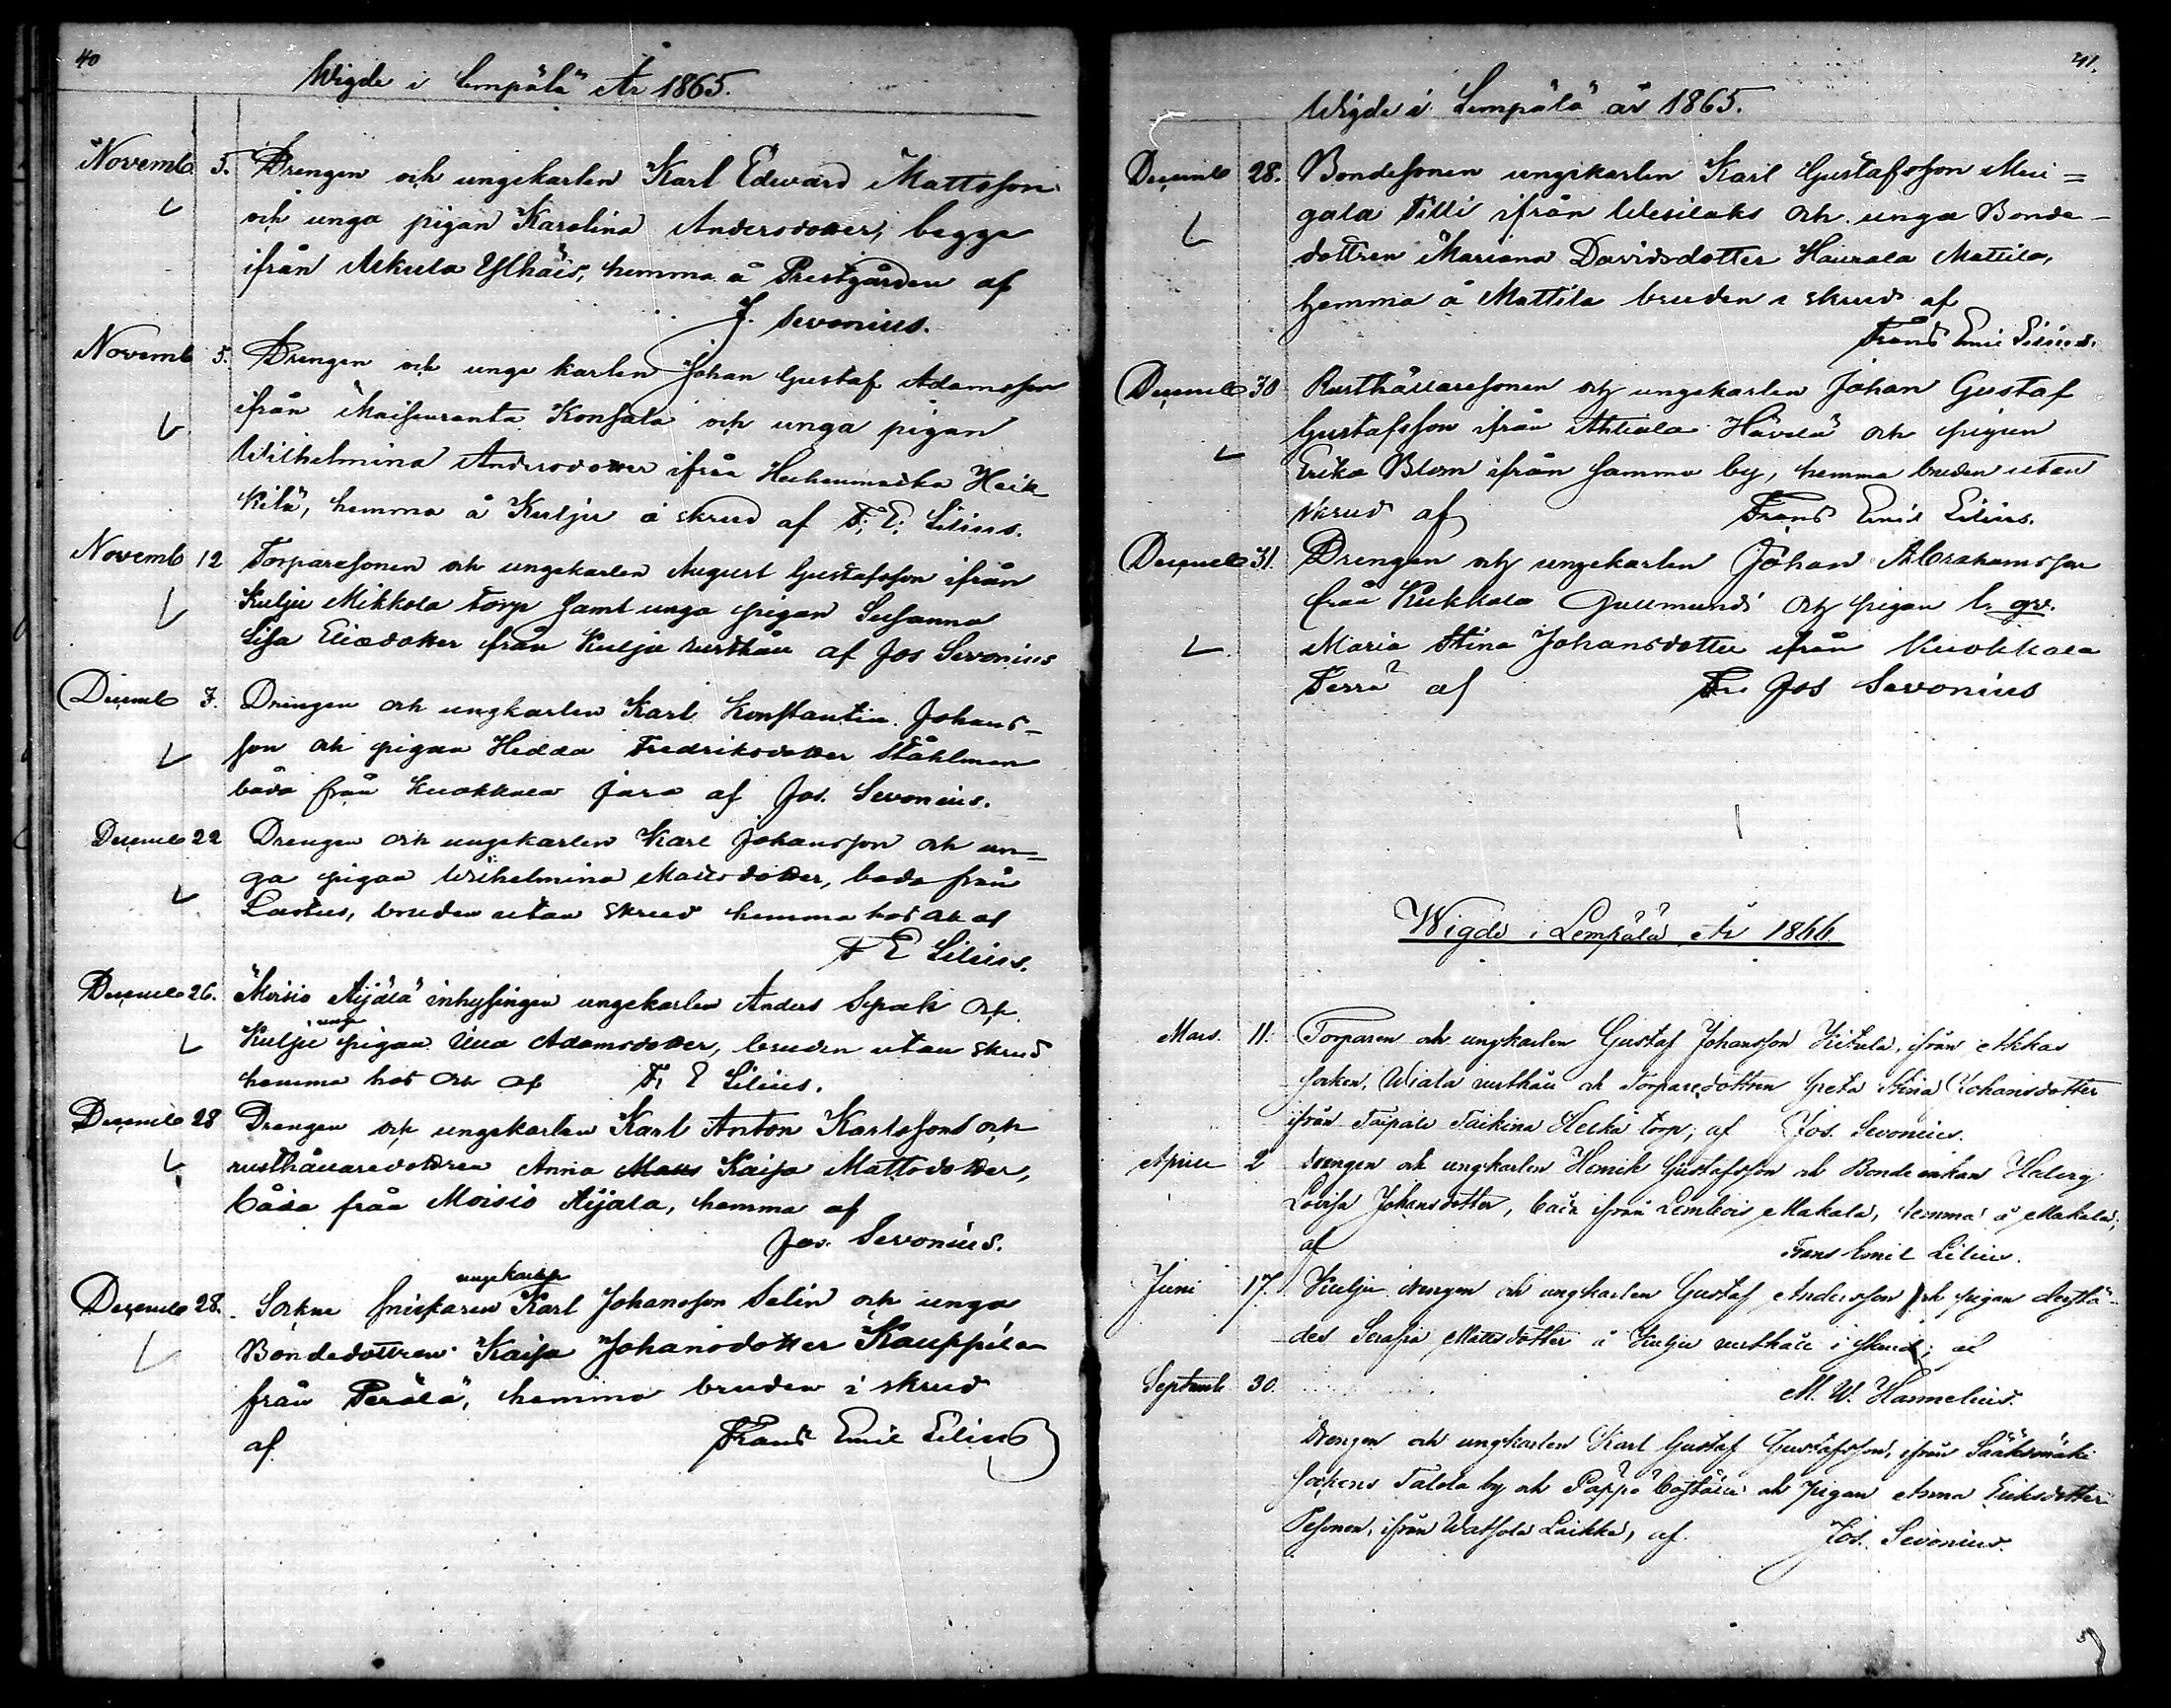 40
Wigde i Lempälä År 1865.
Novemb. 5. Drengen och ungekarlen Karl Edward Mattsson
och unga pigan Karolina Andersdotter, begge
ifrån Ylhäis, hemma å Prestgården af
J. Sevonius.
Novemb 5. Drengen och unge karlen Johan Gustaf Adamsson
ifrån Maisenranta Konsala och unga pigan
Wilhelmina Andersdotter ifrån Heik
kilä, hemma å Kulju i skrud af F. E. Lilius.
Novemb 12 Torparesonen och ungekarlen August Gustafsson ifrån
Kulju Mikkola Torp samt unga pigan Susanna
Lisa Eliædotter från Kulju rusthåll af Jos Sevonius
Decemb 7. Drengen och ungkarlen Karl Konstantin Johans-
son och pigan Hedda Fredriksdotter Ståhlman
båda från Kuokkala Jara af Jos. Sevonius.
Decemb 22 Drengen och ungekarlen Karl Johansson och un-
ga pigan Wilhelmina Mattsdotter, bada från
Lastus, bruden utan skrud hemma hos af
F E Lilius.
Decemb 26. Moisio Äijälä inhysingen ungekarlen Anders Sepak och
unga
Kulju pigan Ulla Adamsdotter, bruden utan skrud
hemma hos af F. E Lilius.
Decemb 28 Drengen och ungekarlen Karl Anton Karlsson och
rusthållaredottren Anna Kaisa Mattsdotter,
båda från Moisio Äijala, hemma af
Jos. Sevonius.
ungekarlen
Decemb 28. Sockne Karl Johansson Selin och unga
Bondedottren Kaisa Johansdotter Kauppila
från Perälä, hemma bruden i skrud
af Frans Emil Lilius
41.
Wigde i Lempälä år 1865.
Decemb 28. Bondesonen ungekarlen Karl Gustafsson Meu=
gala Tilli ifrån Wesilaks och unga Bonde-
dottren Mariana Davidsdotter Haurala Mattila,
hemma å Mattila bruden i skrud af
Frans Emil Lilius.
Decemb 30 Rusthållaresonen och ungekarlen Johan Gustaf
Gustafsson ifrån Ahtiala Hävelä och pigan
Erika Blom ifrån samma by, hemma bruden utan
skrud af Frans Emil Lilius.
Decemb 31. Drengen och ungekarlen Johan Abrahamsson
från Kukkala Gullmunds och pigan
Maria Stina Johansdotter ifrån Kuokkala
Perrä af Jos Sevonius
Wigde i Lempälä År 1866
Mars. 11. Torparen och ungkarlen Gustaf Johansson Kitula, ifrån Akkas
socken, Wiala rusthåll och Torparedottren Greta Stina Johansdotter
ifrån Taipale Taikina Heikä torp; af Jos. Sevonius.
Aprill 2 Drengen och ungkarlen Henrik Gustafsson och Bonde enkan Hedvig
Lovisa Johansdotter, båda ifrån Lembois Makala, hemma å Makala,
af Frans Emil Lilius.
Juni 17. Kulju drengen och ungkarlen Gustaf Andersson och pigan
des Serafia Mattsdotter å Kulju rusthåll i skrud; af
M. W. Hannelius.
Septemb 30.
Drengen och ungkarlen Karl Gustaf Gustafsson, ifrån Sääksmäki
sockens Talola by och Päppö boställe och Pigan Anna Eriksdotter
Pesonen, ifrån Watsola Laikka, af Jos. Sevonius.